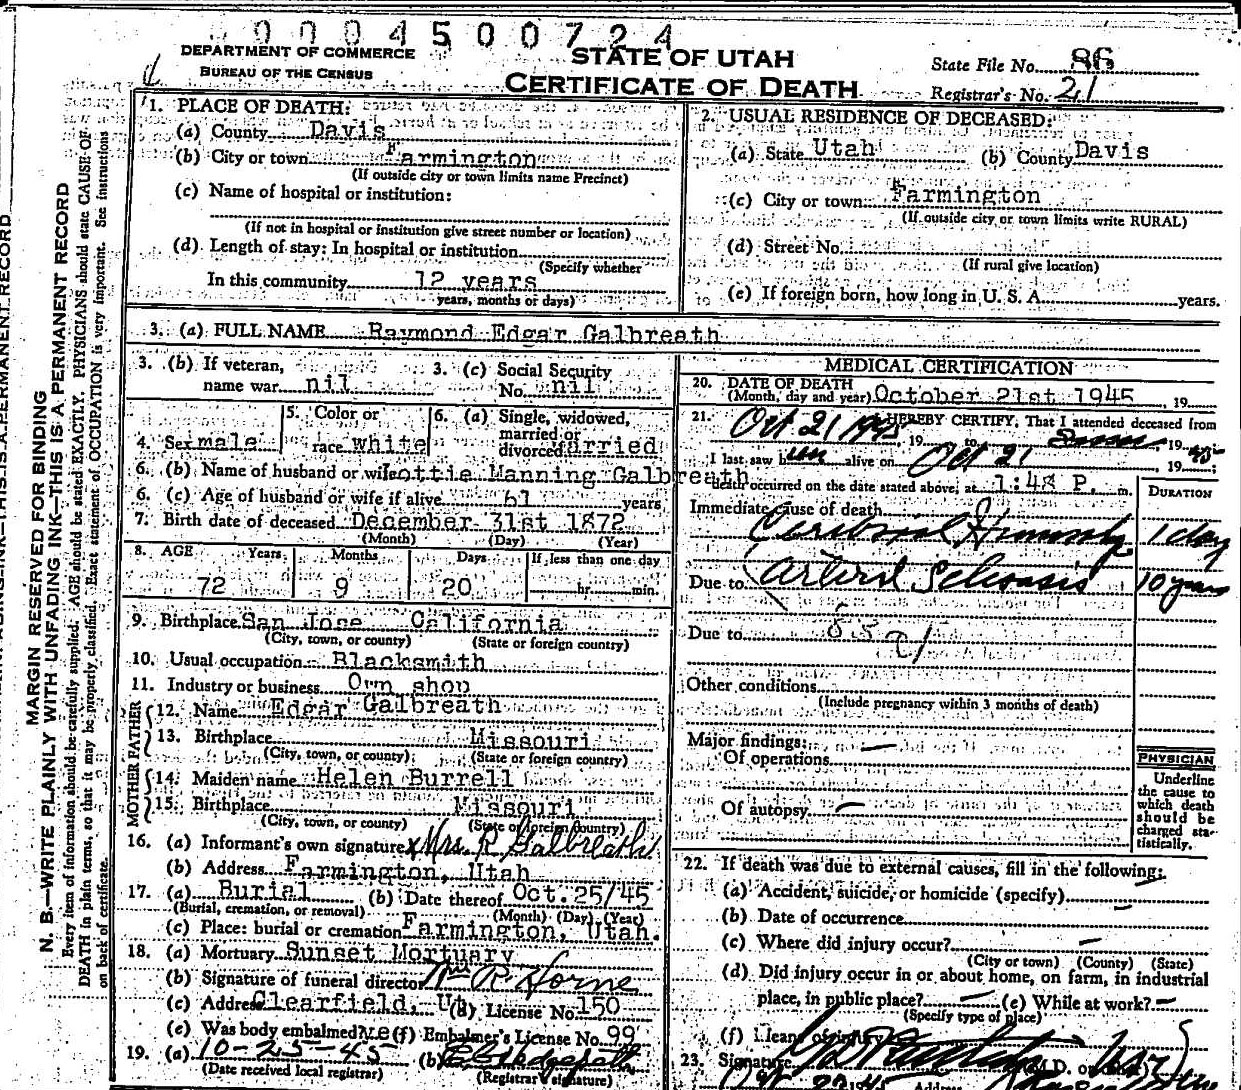 0004500724
DEPARTMENT OF COMMERCE
BUREAU OF THE CENSUS
STATE OF UTAH
CERTIFICATE OF DEATH
State File No. 86
Registrar's No. 21
MARGIN RESERVED FOR BINDING
N. B.—WRITE PLAINLY WITH UNFADING INK—THIS IS A PERMANENT RECORD
Every item of information should be carefully supplied. AGE should be stated EXACTLY. PHYSICIANS should state CAUSE OF
DEATH in plain terms, so that it may be properly classified. Exact statement of OCCUPATION is very important. See instructions
on back of certificate.
1. PLACE OF DEATH:
(a) County Davis
(b) City or town Farmington
(If outside city or town limits name Precinct)
(c) Name of hospital or institution:
(If not in hospital or institution give street number or location)
(d) Length of stay: In hospital or institution
(Specify whether
In this community 12 years
years, months or days)
2. USUAL RESIDENCE OF DECEASED:
(a) State Utah (b) County Davis
(c) City or town Farmington
(If outside city or town limits write RURAL)
(d) Street No.
(If rural give location)
(e) If foreign born, how long in U. S. A. years.
3. (a) FULL NAME Raymond Edgar Galbreath
3. (b) If veteran,
name war nil
3. (c) Social Security
No. nil
4. Sex male
5. Color or
race white
6. (a) Single, widowed,
married or
divorced arried
6. (b) Name of husband or wife Lottie Manning Galbreath
6. (c) Age of husband or wife if alive 61 years
7. Birth date of deceased December 31st 1872
(Month) (Day) (Year)
8. AGE Years Months Days If less than one day
72 9 20 hr. min.
9. Birthplace San Jose California
(City, town, or county) (State or foreign country)
10. Usual occupation Blacksmith
11. Industry or business Own shop
FATHER
12. Name Edgar Galbreath
13. Birthplace Missouri
(City, town, or county) (State or foreign country)
MOTHER
14. Maiden name Helen Burrell
15. Birthplace Missouri
(City, town, or county) (State or foreign country)
16. (a) Informant's own signature x Mrs. R. Galbreath
(b) Address Farmington, Utah
17. (a) Burial (b) Date thereof Oct. 25/45
(Burial, cremation, or removal) (Month) (Day) (Year)
(c) Place: burial or cremation Farmington, Utah.
18. (a) Mortuary Sunset Mortuary
(b) Signature of funeral director Wm R Horne
(c) Address Clearfield, Ut (d) License No. 150
(e) Was body embalmed yes (f) Embalmer's License No. 99
19. (a) 10-25-45 (b)
(Date received local registrar) (Registrar's signature)
MEDICAL CERTIFICATION
20. DATE OF DEATH
(Month, day and year) October 21st 1945, 19
21. I HEREBY CERTIFY, That I attended deceased from
Oct 21 1945, 19 to , 19 45
I last saw him alive on Oct 21, 19 ;
death occurred on the date stated above, at 1:48 P. m.
DURATION
Immediate cause of death
Cerebral Hemmorhg 1 day
Due to Arterial Sclerosis 10 years
Due to
Other conditions
(Include pregnancy within 3 months of death)
Major findings:
Of operations
Of autopsy
PHYSICIAN
Underline
the cause to
which death
should be
charged sta-
tistically.
22. If death was due to external causes, fill in the following:
(a) Accident, suicide, or homicide (specify)
(b) Date of occurrence
(c) Where did injury occur?
(City or town) (County) (State)
(d) Did injury occur in or about home, on farm, in industrial
place, in public place? (e) While at work?
(Specify type of place)
(f) Means of injury
23. Signature (M.D. or
Address